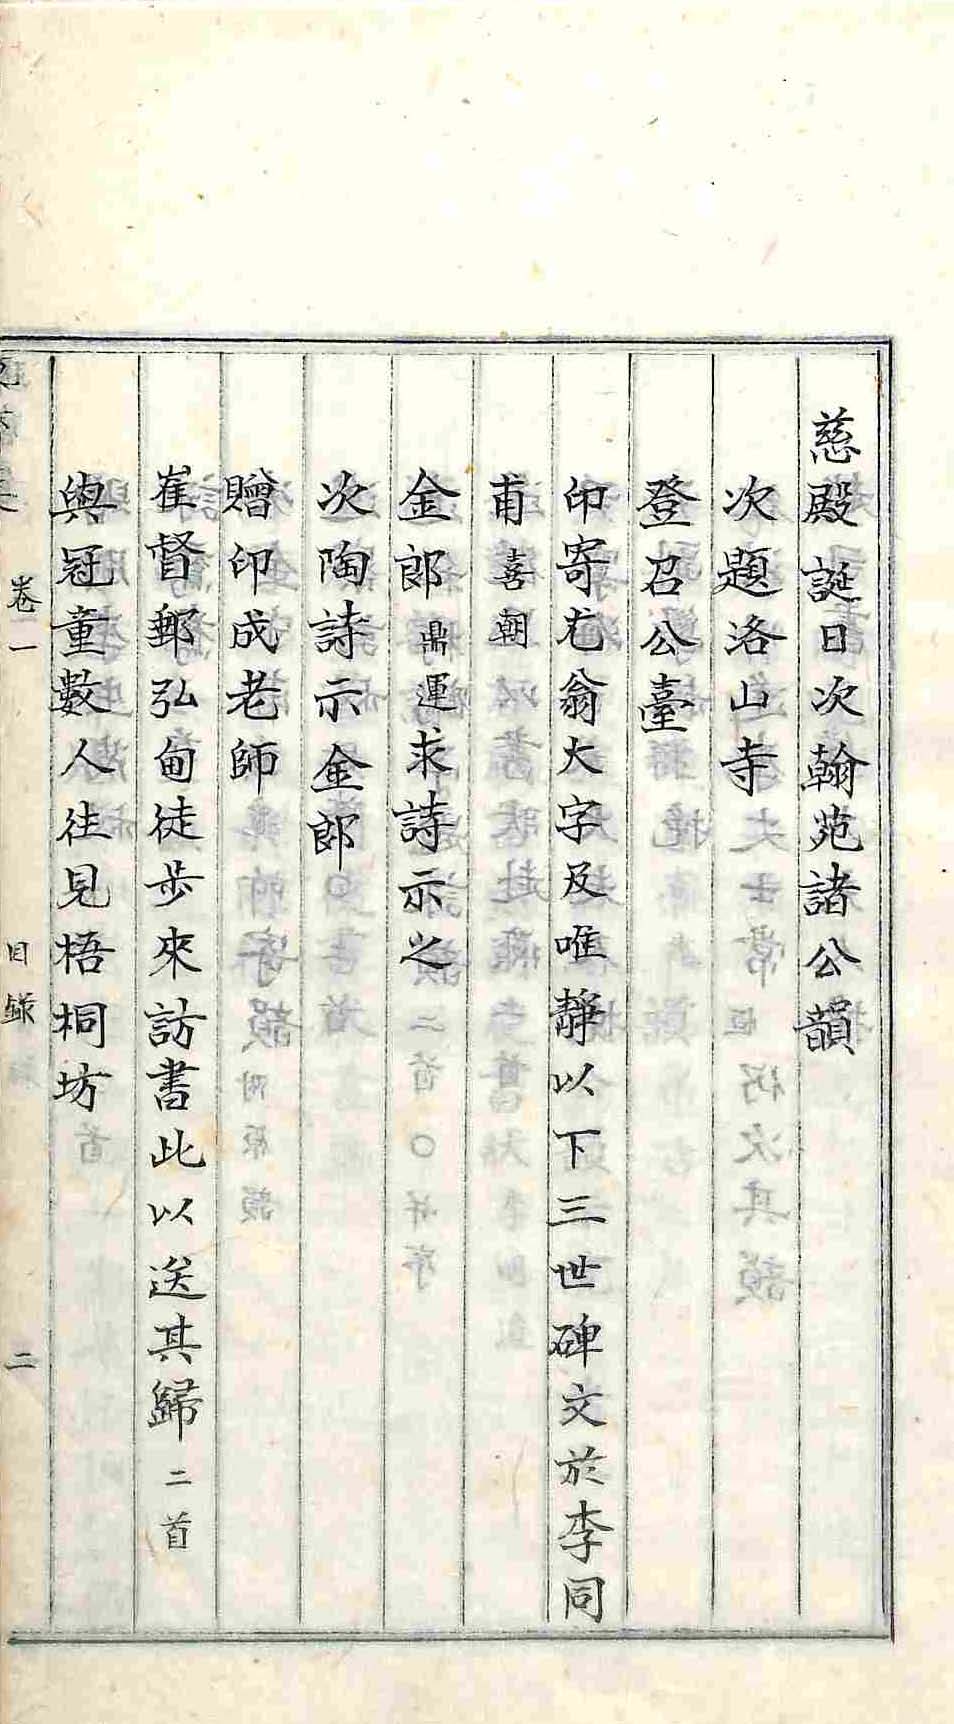 慈殿誕日次翰苑諸公韻
次題洛山寺
登召公臺
印寄尤翁大字及唯靜以下三世碑文於李同
甫喜朝
金郎鼎運求詩示之
次陶詩示金郎
贈印成老師
崔督郵弘甸徒步來訪書此以送其歸二首
與冠童數人往見梧桐坊
卷一 目錄 二